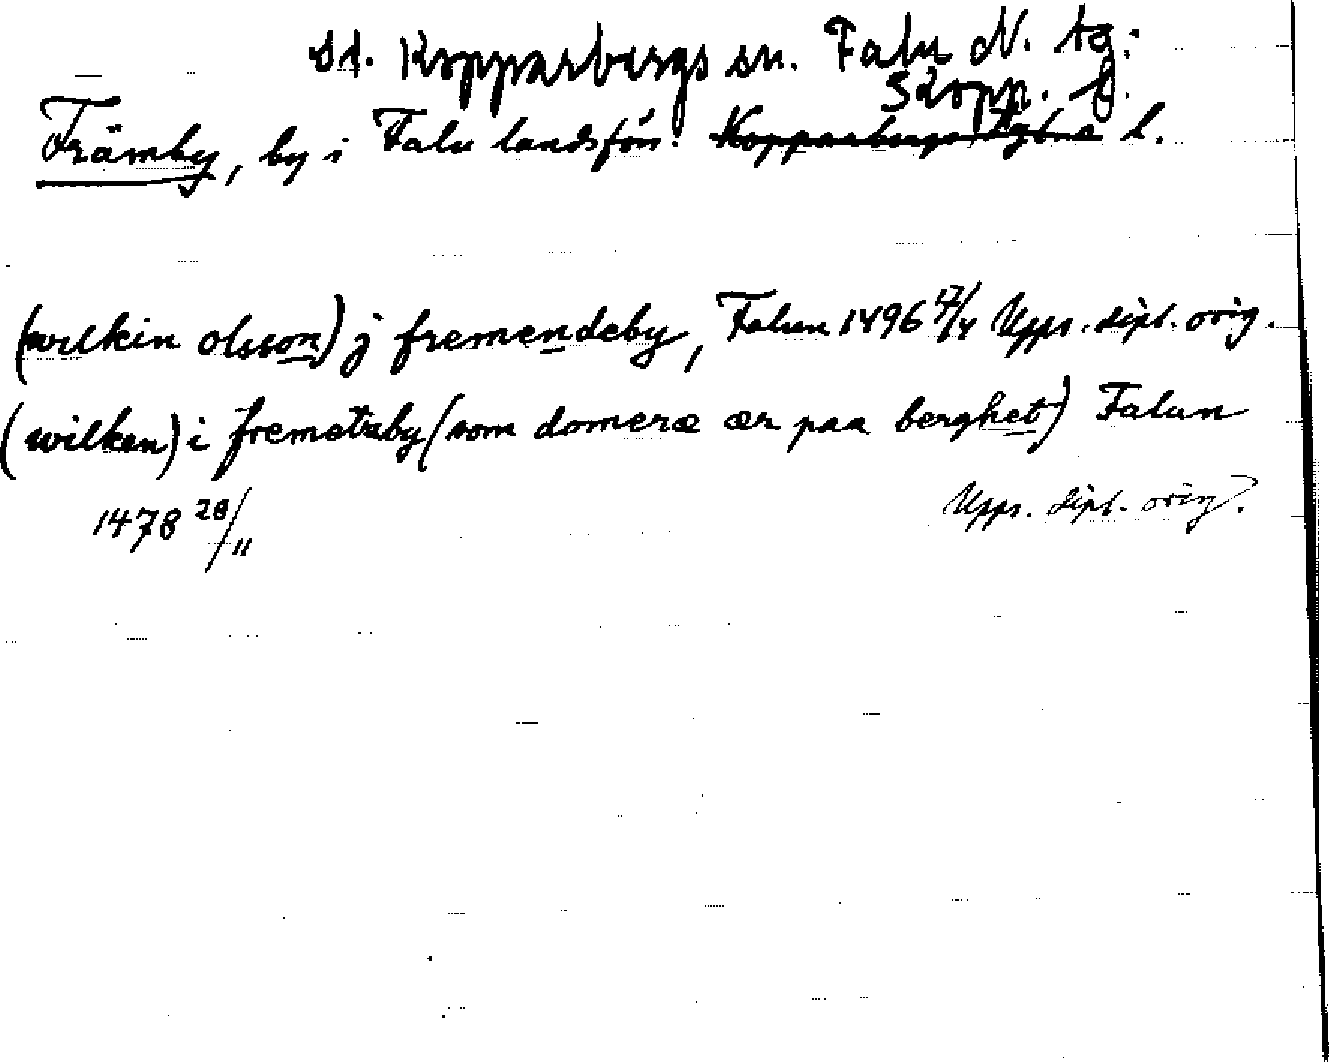 St. Kopparbergs sn. Falu N. tg:
S Kopp. l.
Främby, by i Falu landsförs. Kopparbergs l.
(wilkin olsson) j fremendeby, Falun 1496 17/4 Upps. dipl. orig.
(wilken) i fremetzby (som domeræ ær paa berghet) Falun
1478 28/11 Upps. dipl. orig.